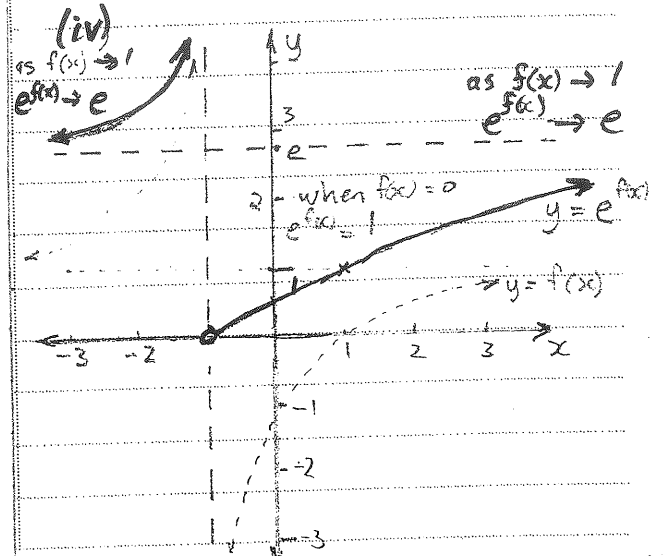 (iv)
as f(x) → 1
e^f(x) → e
y
as f(x) → 1
e^f(x) → e
3
e
2 - when f(x) = 0
e^f(x) = 1
y = e^f(x)
1
y = f(x)
-3 -2 1 2 3 x
-1
-2
-3